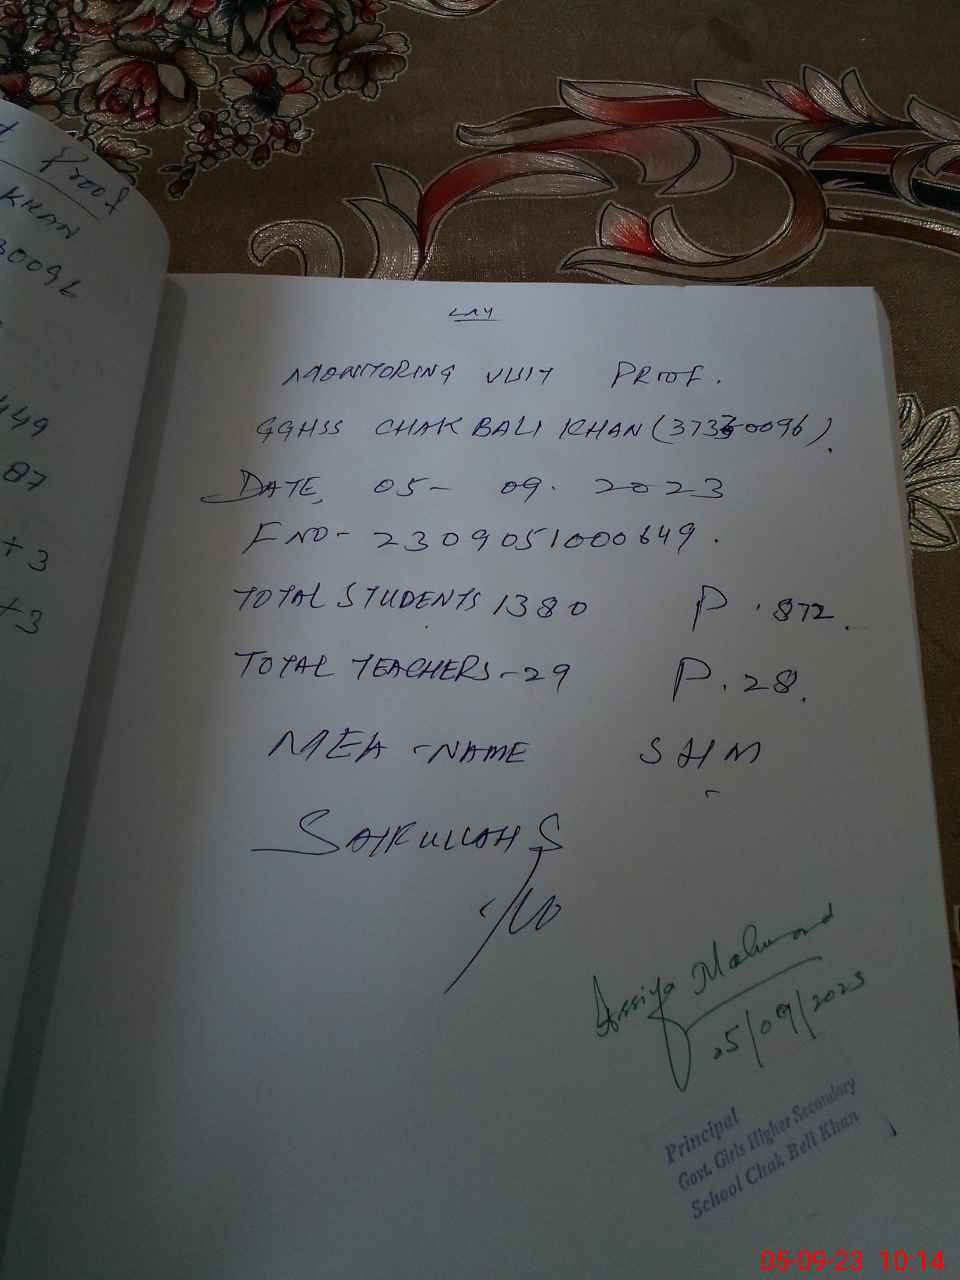 t Proof
KHAN
30096
449
87
+3
+3
MONITORING VISIT PROOF.
GGHSS CHAK BALI KHAN (37330096).
DATE, 05- 09. 2023
F NO- 2309051000649.
TOTAL STUDENTS 1380 P. 872.
TOTAL TEACHERS-29 P. 28.
MEA -NAME SHM
SAIFULLAH S
Assiya Mahmood
05/09/2023
Principal
Govt. Girls Higher Secondary
School Chak Beli Khan
05-09-23 10:14